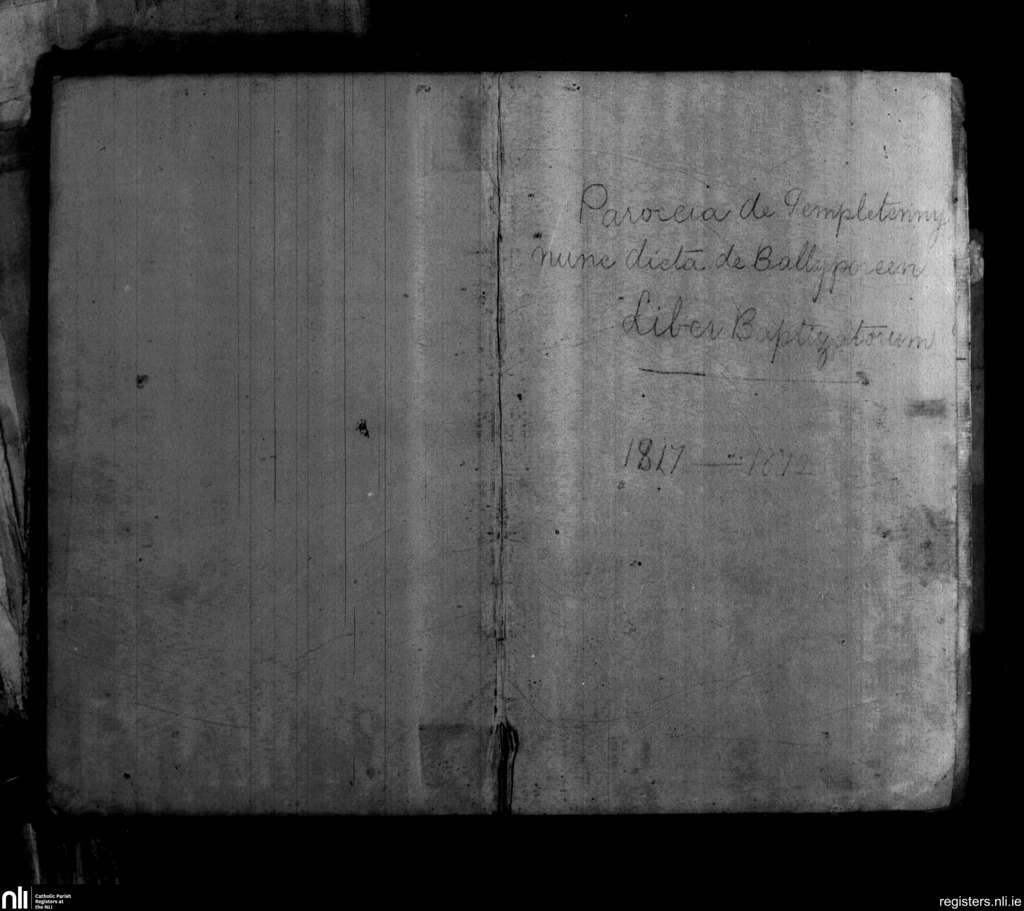 Paroecia de Templetenny
nunc dicta de Ballyporeen
Liber Baptizatorum
1817 —
nli
Catholic Parish
Registers at
the NLI
registers.nli.ie